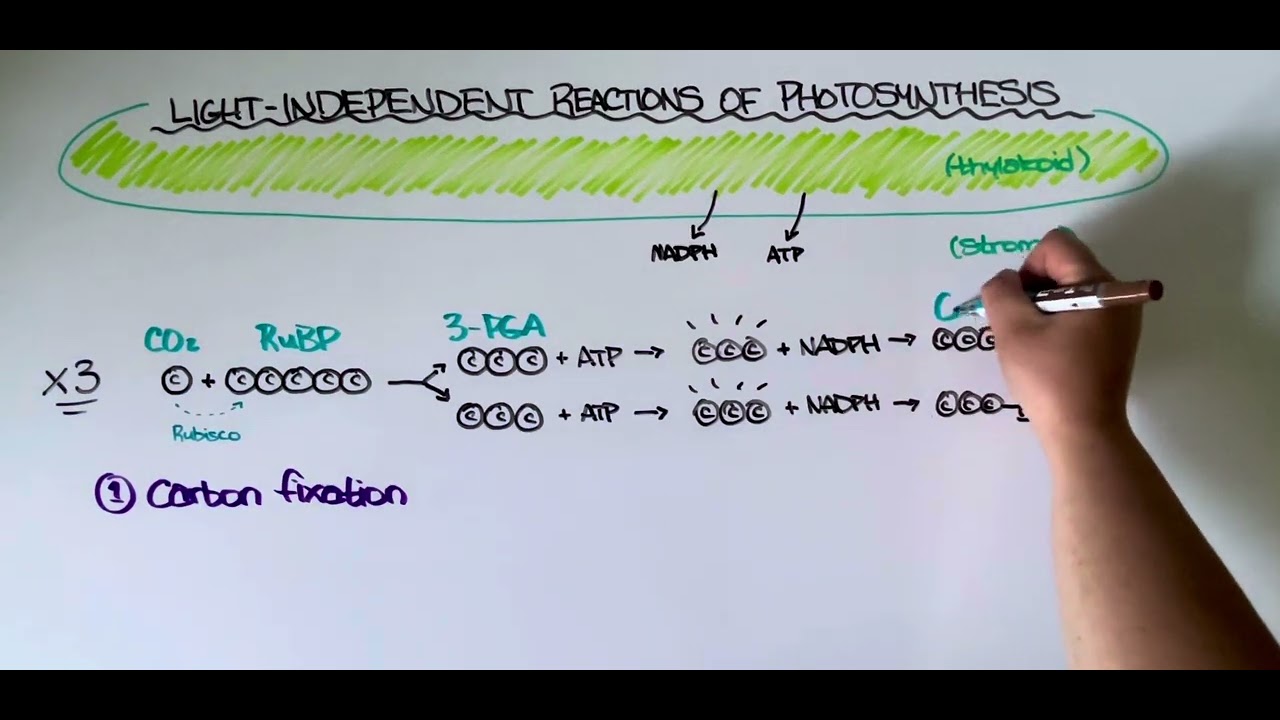 LIGHT-INDEPENDENT REACTIONS OF PHOTOSYNTHESIS
(thylakoid)
NADPH ATP
CO₂ RuBP 3-PGA
x3 C + C C C C C C C C + ATP → C C C + NADPH → C C C
C C C + ATP → C C C + NADPH → C C C
Rubisco
① Carbon fixation